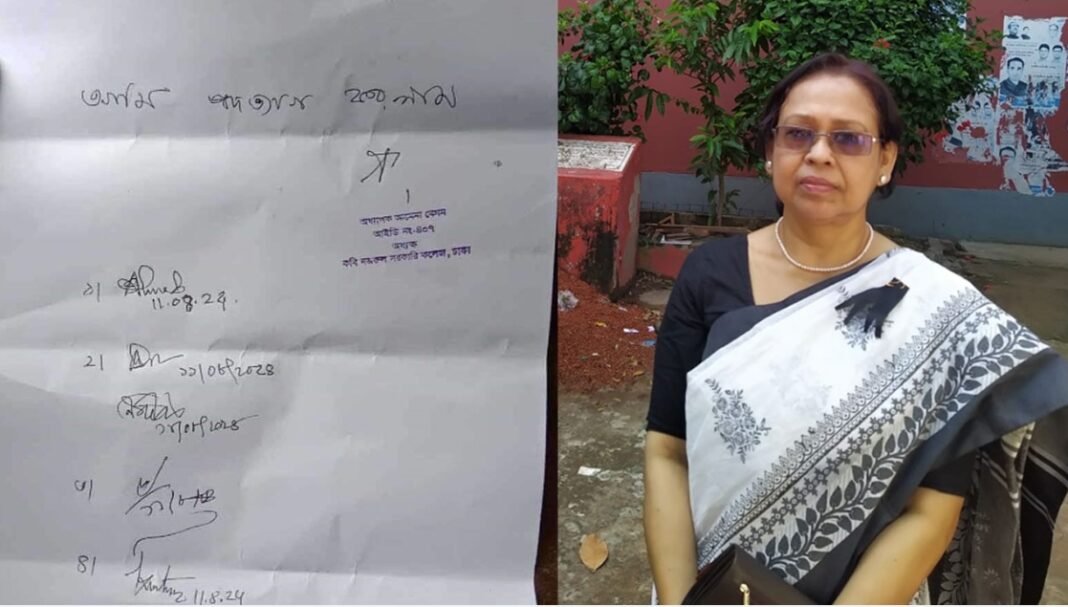 আমি পদত্যাগ করলাম
অধ্যাপক আমেনা বেগম
আইডি নং-৪০৭
অধ্যক্ষ
কবি নজরুল সরকারি কলেজ, ঢাকা
১। Ahmed
11.08.24.
২। ১১/০৮/২০২৪
১১/০৮/২০২৪
৩।
৪।
11.8.24